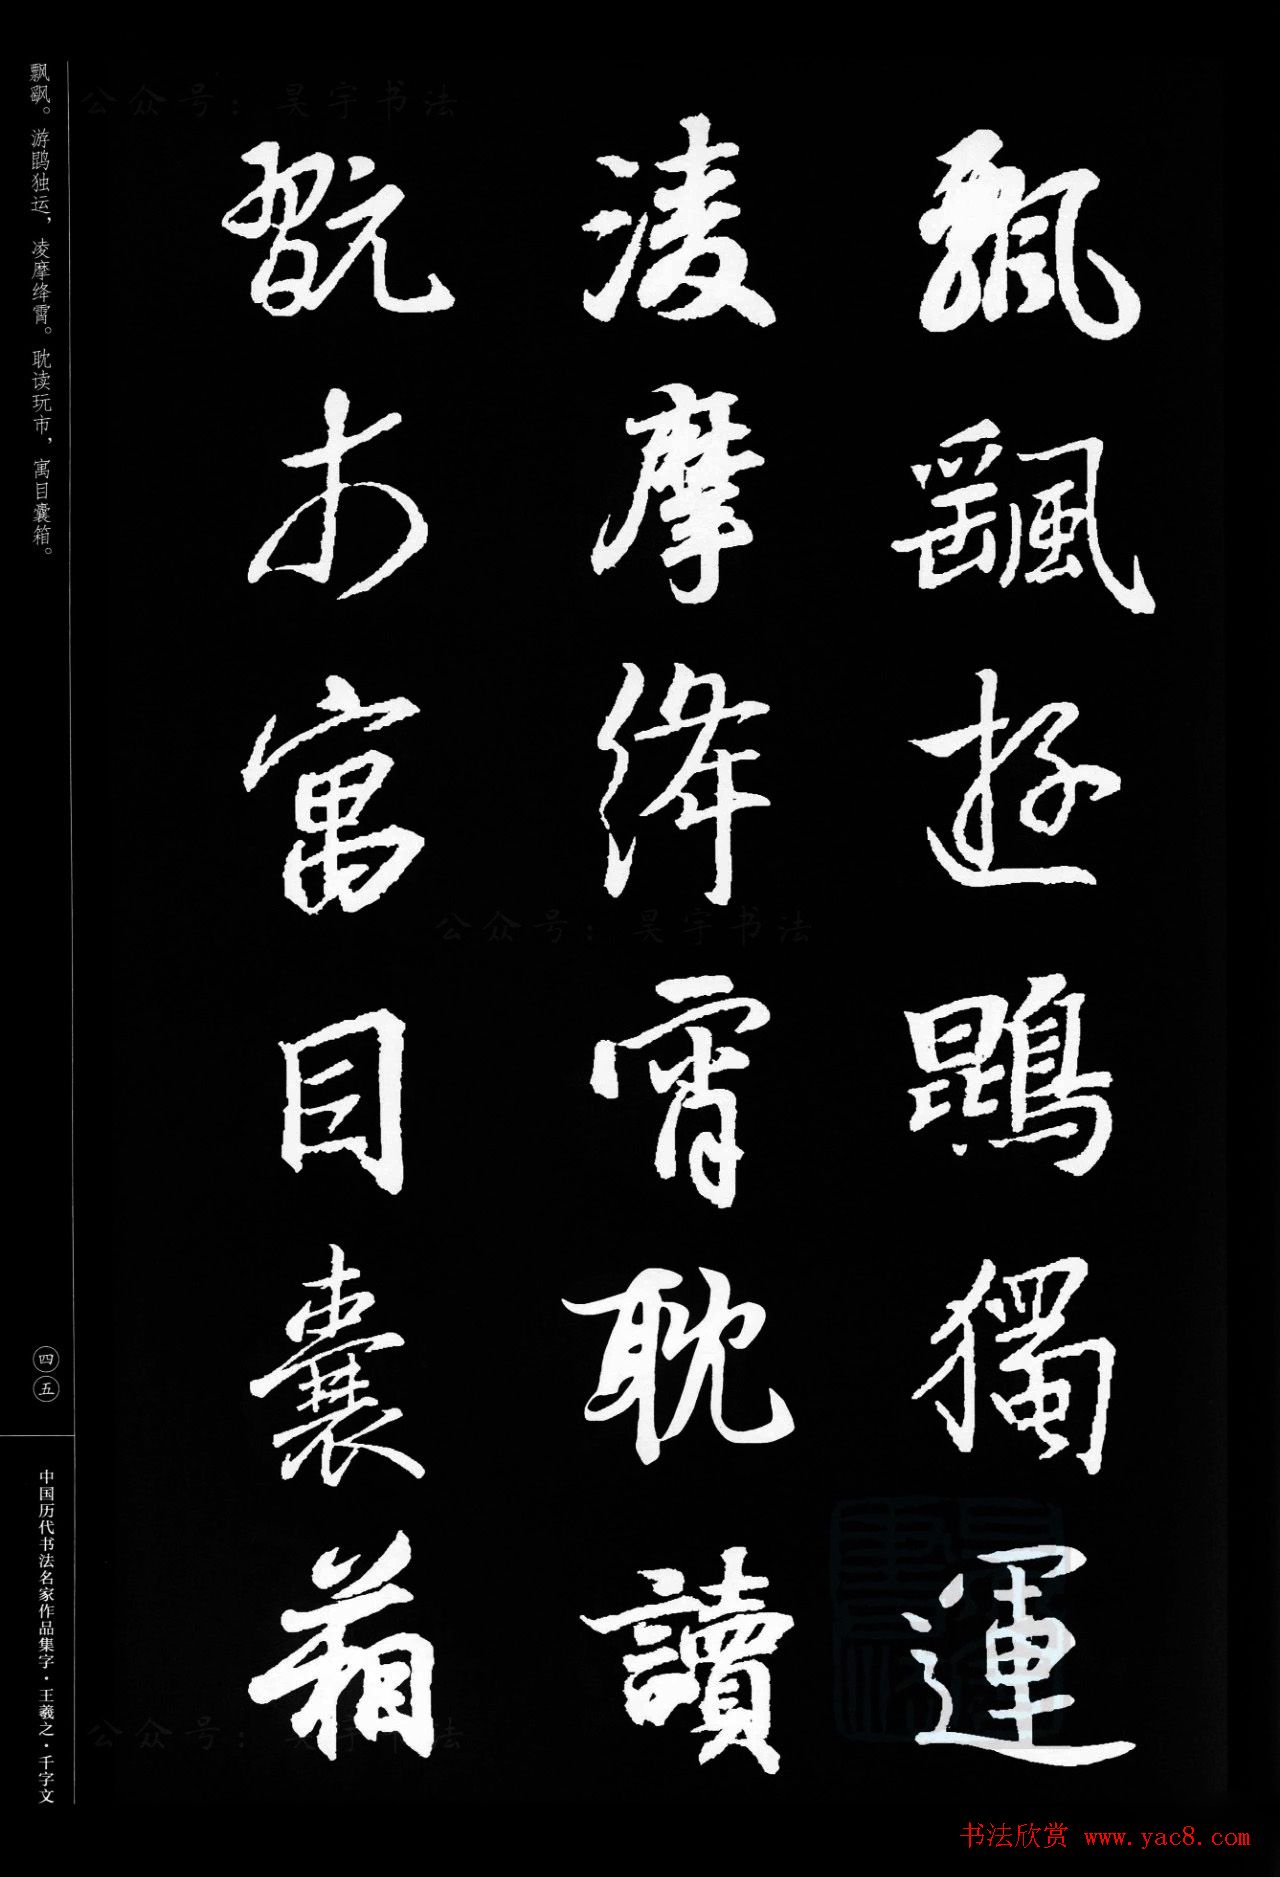 飄颻遊鵾獨運
凌摩絳霄耽讀
翫市寓目囊箱
飘飖。游鹍独运，凌摩绛霄。耽读玩市，寓目囊箱。
四五
中国历代书法名家作品集字·王羲之·千字文
公众号：昊宇书法
公众号：昊宇书法
公众号：昊宇书法
书法欣赏 www.yac8.com